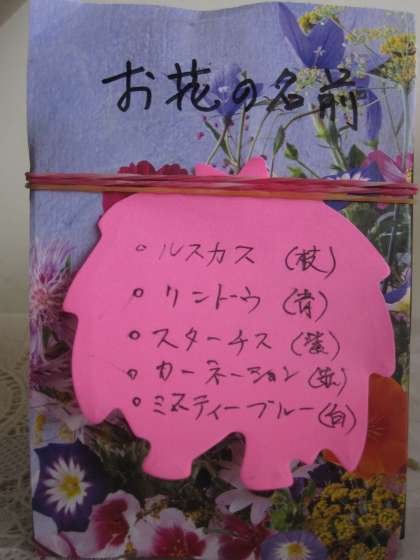 お花の名前
○ルスカス(枝)
○リンドウ(青)
○スターチス(紫)
○カーネーション(赤)
○ミスティーブルー(白)